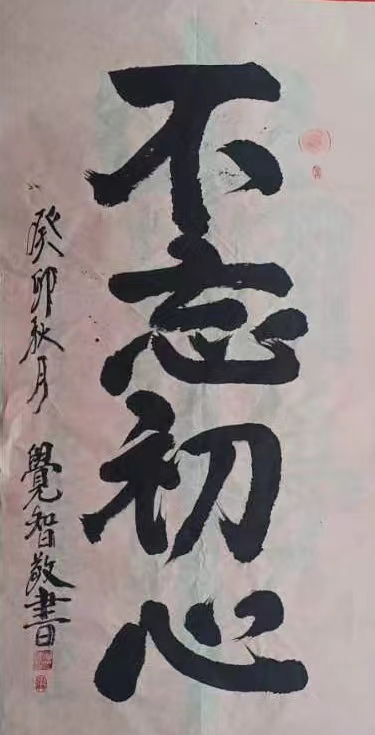 不忘初心
癸卯秋月
覺智敬書